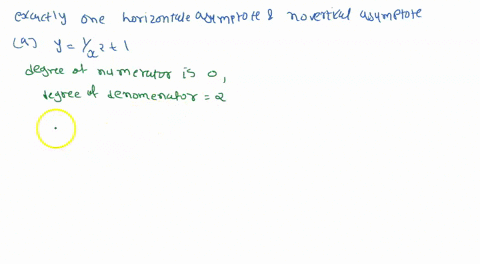 exactly one horizontale asymptote & no vertical asymptote
(a) y = 1/x² + 1
degree of numerator is 0,
degree of denomenator = 2